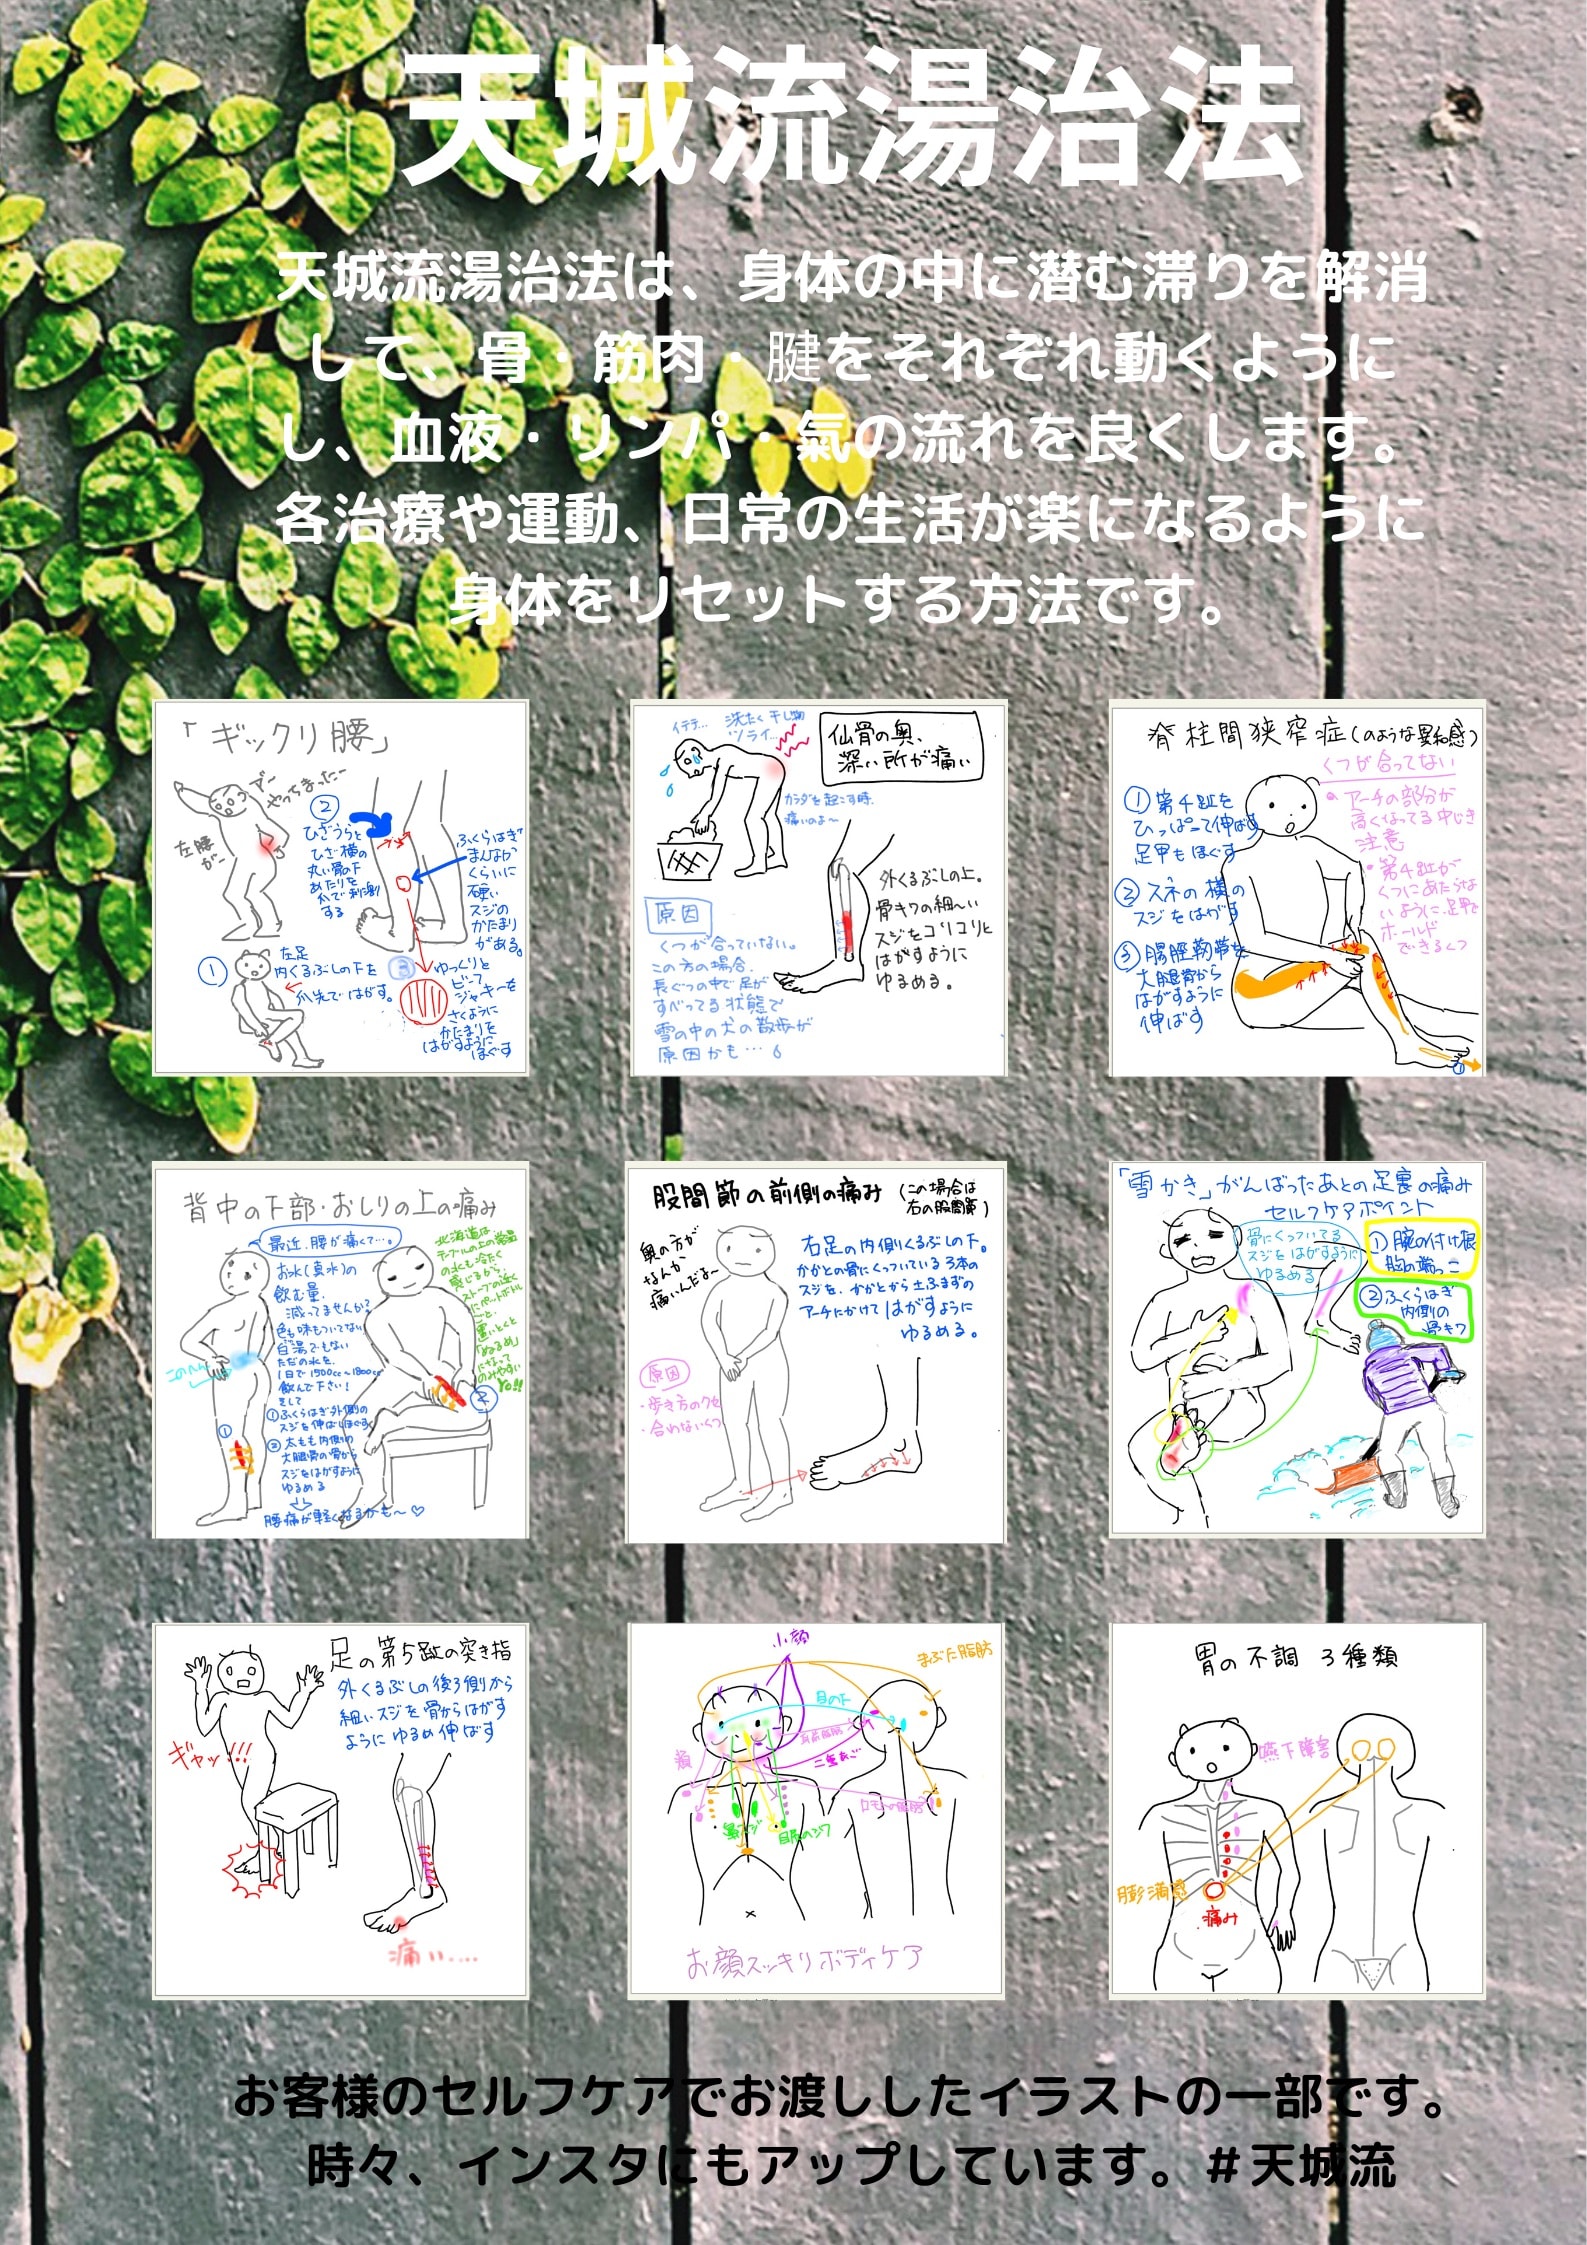 天城流湯治法
天城流湯治法は、身体の中に潜む滞りを解消
して、骨・筋肉・腱をそれぞれ動くように
し、血液・リンパ・氣の流れを良くします。
各治療や運動、日常の生活が楽になるように
身体をリセットする方法です。
「ギックリ腰」
アー
やっちまったー
左腰
がー
②
ひざうらと
ひざ横の
丸い骨の下
あたりを
爪で刺激
する
ふくらはぎ
まんなか
くらいに
硬い
スジの
かたまり
がある。
①
左足
内くるぶしの下を
爪先ではがす。
③
ゆっくりと
ビーフ
ジャーキーを
さくように
かたまりを
はがすように
ほぐす
イテテ… 洗たく干し物
ツライ…
仙骨の奥、
深い所が痛い
カラダを起こす時、
痛いのよ〜
原因
くつが合っていない。
この方の場合、
長ぐつの中で足が
すべってる状態で
雪の中の犬の散歩が
原因かも…
外くるぶしの上。
骨キワの細〜い
スジをコリコリと
はがすように
ゆるめる。
脊柱間狭窄症(のような異和感)
くつが合ってない
・アーチの部分が
高くなってる中じき
注意
・第4趾が
くつにあたらな
いように、足甲で
ホールド
できるくつ
①第4趾を
ひっぱって伸ばす
足甲もほぐす
②スネの横の
スジをはがす
③腸脛靭帯を
大腿骨から
はがすように
伸ばす
①
背中の下部・おしりの上の痛み
最近、腰が痛くて…。
お水(真水)の
飲む量、
減ってませんか?
色も味もついてない
白湯でもない
ただの水を、
1日で1500cc〜1800cc
飲んで下さい!
そして
①ふくらはぎ外側の
スジを伸ばしほぐす
②太もも内側の
大腿骨の骨から
スジをはがすように
ゆるめる
腰痛が軽くなるかも〜♡
このへん
①
②
北海道は
テーブルの上の常温
の水も冷たく
感じるから、
ストーブの近く
にペットボトル
ごと、
置いとくと
「ぬるめ」
になって
のみやすい
よ!!
股間節の前側の痛み
(この場合は
右の股間節)
奥の方が
なんか
痛いんだよ〜
右足の内側くるぶしの下。
かかとの骨にくっついている3本の
スジを、かかとから土ふまずの
アーチにかけてはがすように
ゆるめる。
原因
・歩き方のクセ
・合わないくつ
「雪かき」がんばったあとの足裏の痛み
セルフケアポイント
骨にくっついてる
スジをはがすように
ゆるめる
①腕の付け根
胸の端っこ
②ふくらはぎ
内側の
骨キワ
足の第5趾の突き指
外くるぶしの後ろ側から
細いスジを骨からはがす
ようにゆるめ伸ばす
ギャッ!!!
痛い….
小顔
まぶた脂肪
目の下
頬
二重あご
目尻のシワ
お顔スッキリボディケア
胃の不調 3種類
嚥下障害
膨満感
痛み
お客様のセルフケアでお渡ししたイラストの一部です。
時々、インスタにもアップしています。＃天城流